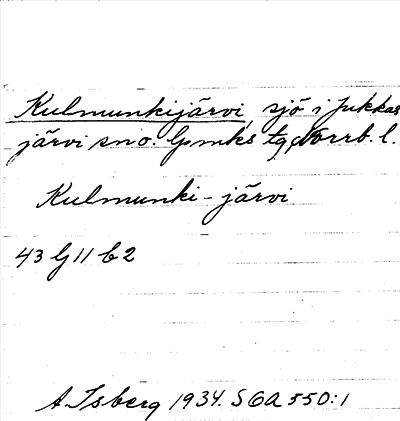 Kulmunkijärvi, sjö i Jukkas
järvi sno. Lpmks tg, Norrb. l.
Kulmunki-järvi
43 G 11 b 2
A. Isberg 1934. SOA 550:1